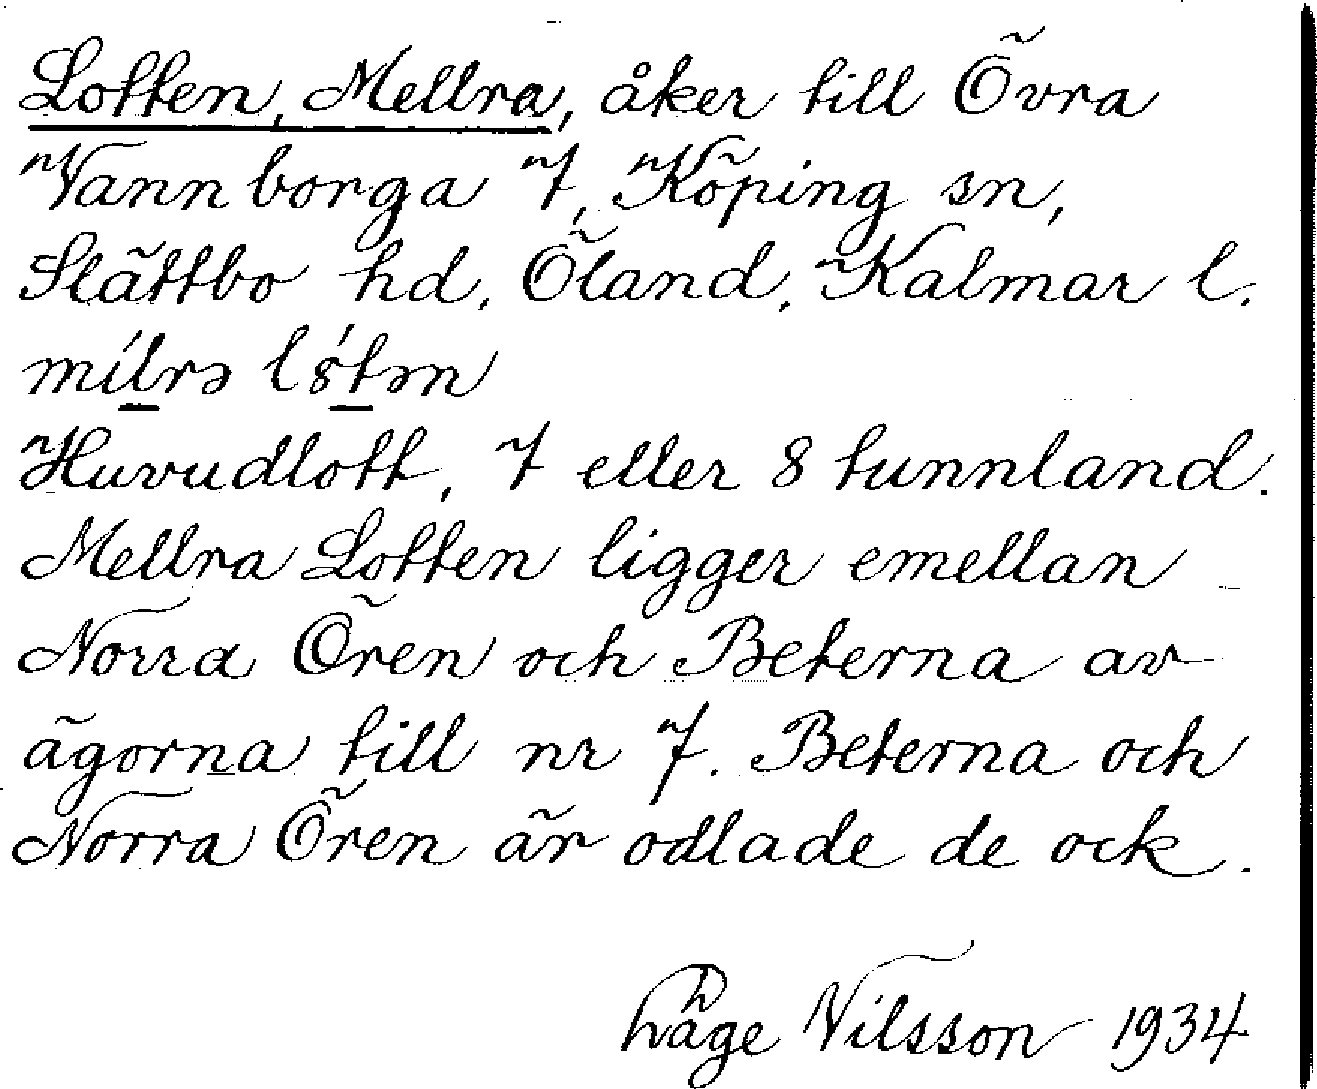 Lotten, Mellra, åker till Övra
Vannborga 7, Köping sn,
Slättbo hd, Öland, Kalmar l.
mílrə lótən
Huvudlott, 7 eller 8 tunnland.
Mellra Lotten ligger emellan
Norra Ören och Beterna av
ägorna till nr 7. Beterna och
Norra Ören är odlade de ock.
Håge Nilsson 1934